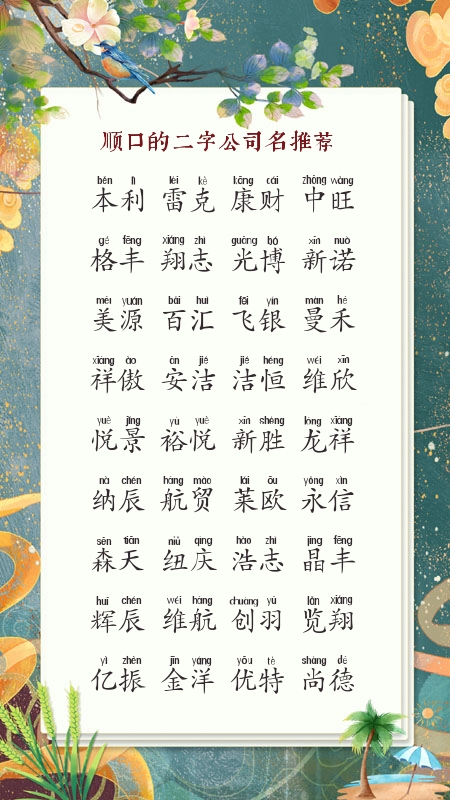 顺口的二字公司名推荐
běn lì léi kè kāng cái zhōng wàng
本利 雷克 康财 中旺
gé fēng xiáng zhì guāng bó xīn nuò
格丰 翔志 光博 新诺
měi yuán bǎi huì fēi yín màn hé
美源 百汇 飞银 曼禾
xiáng ào ān jié jié héng wéi xīn
祥傲 安洁 洁恒 维欣
yuè jǐng yù yuè xīn shèng lóng xiáng
悦景 裕悦 新胜 龙祥
nà chén háng mào lái ōu yǒng xìn
纳辰 航贸 莱欧 永信
sēn tiān niǔ qìng hào zhì jīng fēng
森天 纽庆 浩志 晶丰
huī chén wéi háng chuàng yǔ lǎn xiáng
辉辰 维航 创羽 览翔
yì zhèn jīn yáng yōu tè shàng dé
亿振 金洋 优特 尚德